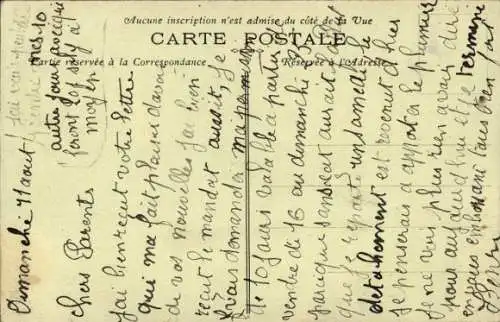 Aucune inscription n'est admise du côté de la Vue
CARTE POSTALE
Partie réservée à la Correspondance
Réservée à l'Adresse
Dimanche 11 aout
chers Parents
j'ai bien recut votre lettre
qui ma fait plaisir d'avoir
de vos nouvelles j'ai bien
recut le mandat aussit, je
vais demander ma permission
de 10 jours valable a partir du
vendre di 16 au dimanche
parceque sans
que je reparte un samedi le
detachement est revenut d hier
je penserais a apporter le plumier
je ne vus plus rien a vous dire
pour aujourdhui et je termine
en vous embrassant tous bien fort
j'ai vu
autre jour avec qui
moyen